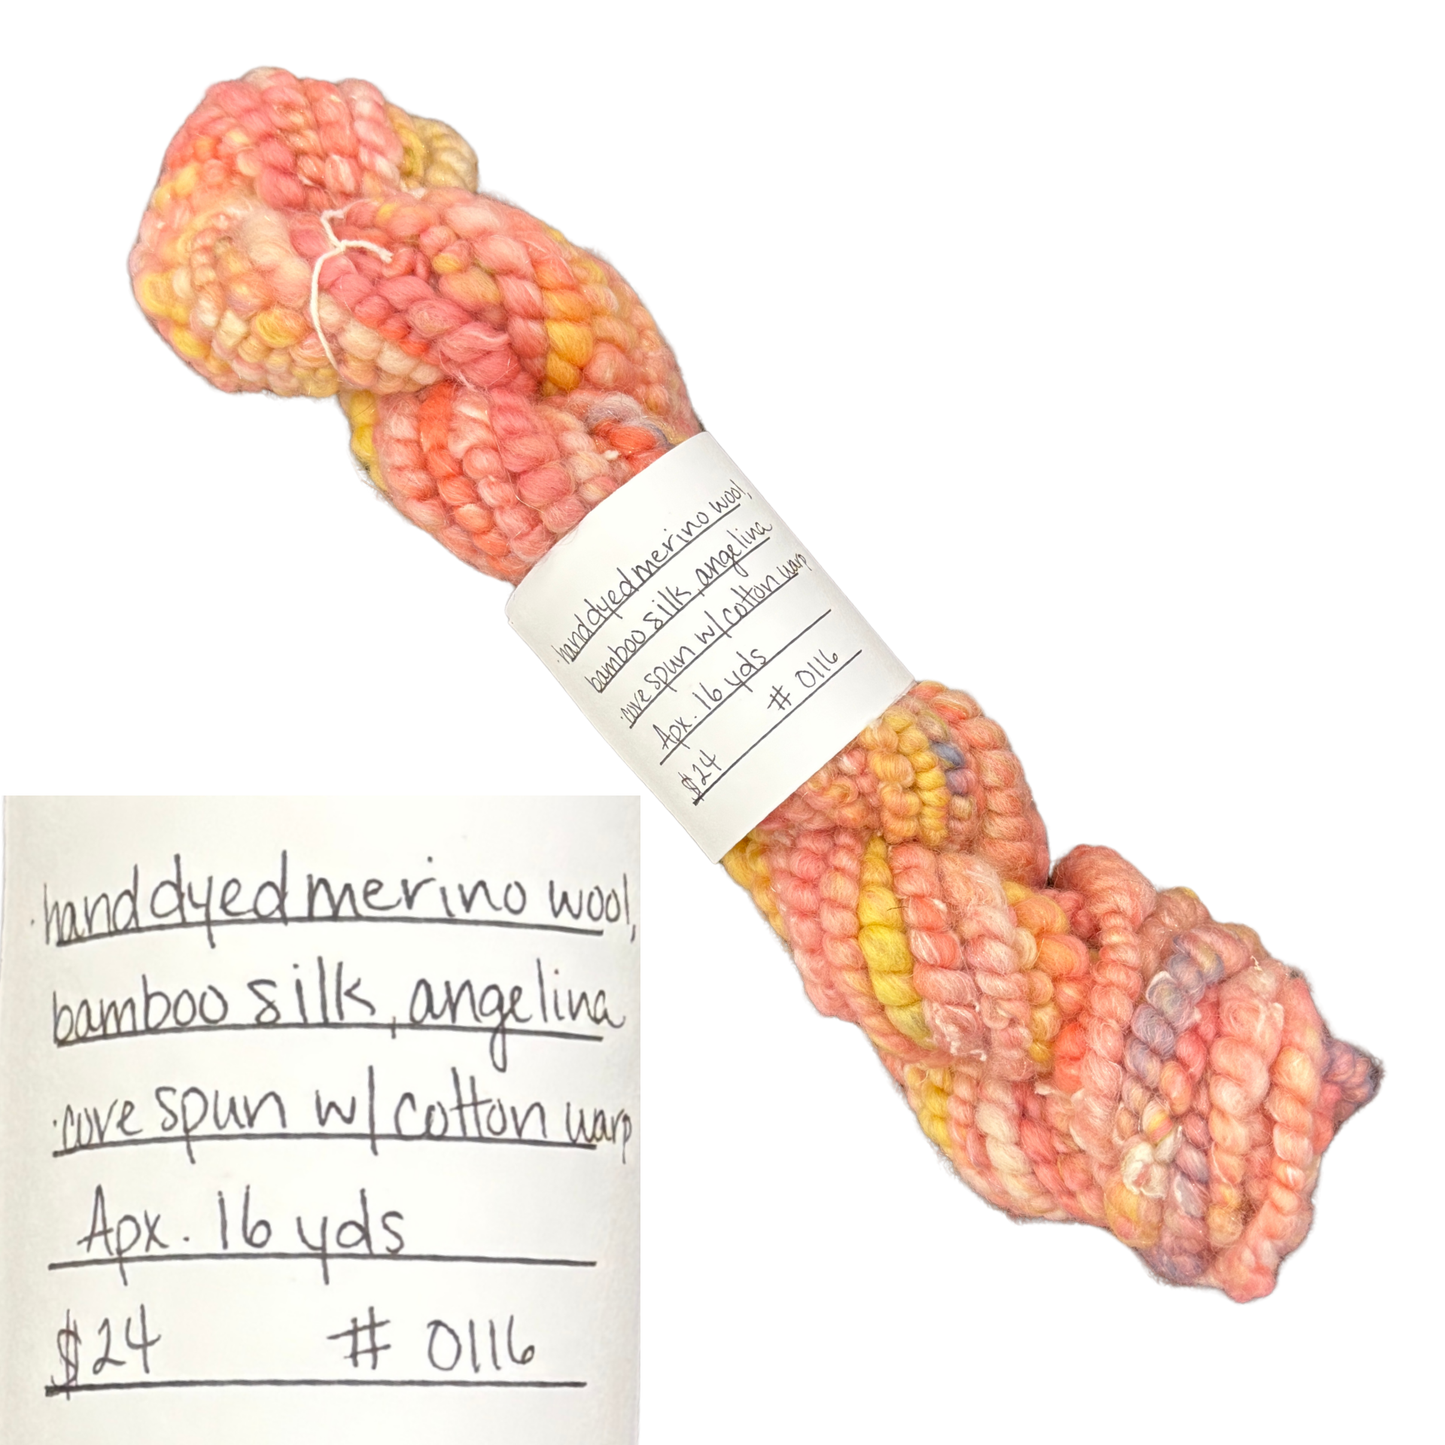 ·hand dyed merino wool,
bamboo silk, angelina
·core spun w/ cotton warp
Apx. 16 yds
# 0116
$24
·hand dyed merino wool,
bamboo silk, angelina
·core spun w/ cotton warp
Apx. 16 yds
$24 # 0116